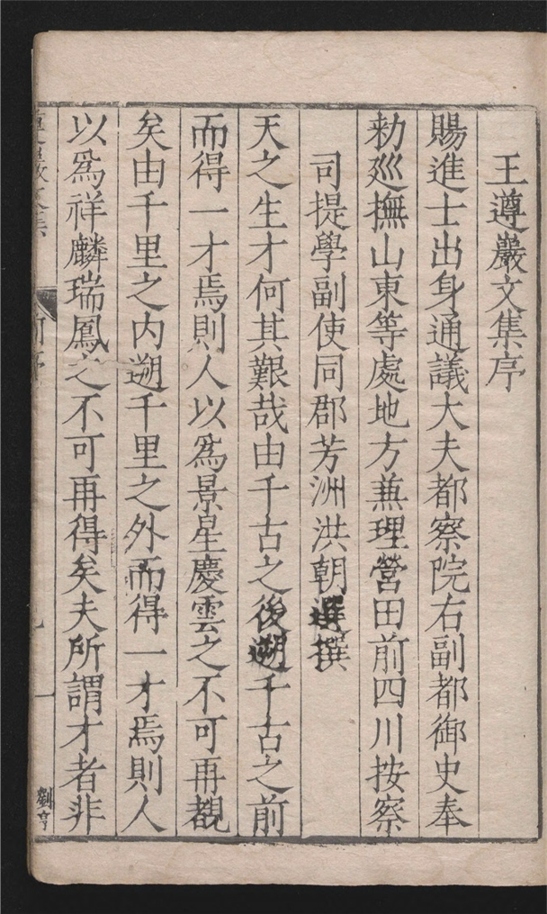 王遵巖文集序
賜進士出身通議大夫都察院右副都御史奉
勑廵撫山東等處地方兼理營田前四川按察
司提學副使同郡芳洲洪朝選撰
天之生才何其艱哉由千古之後遡千古之前
而得一才焉則人以爲景星慶雲之不可再覩
矣由千里之内遡千里之外而得一才焉則人
以爲祥麟瑞鳳之不可再得矣夫所謂才者非
序
一
劉亨